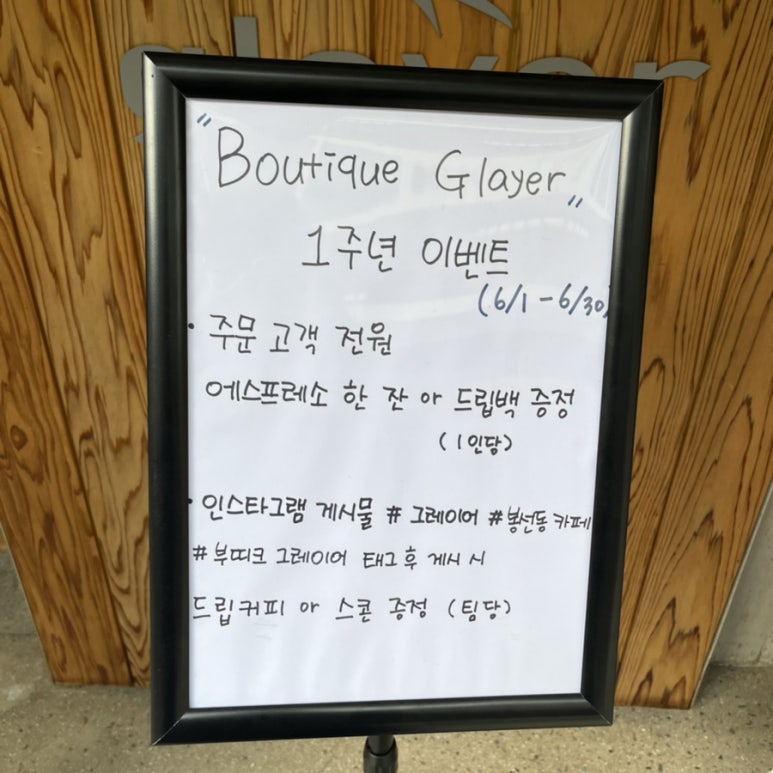 glayer
"Boutique Glayer"
1주년 이벤트
(6/1 - 6/30)
· 주문 고객 전원
에스프레소 한 잔 or 드립백 증정
(1인당)
· 인스타그램 게시물 # 그레이어 #봉선동 카페
# 부띠크 그레이어 태그 후 게시 시
드립커피 or 스콘 증정 (팀당)